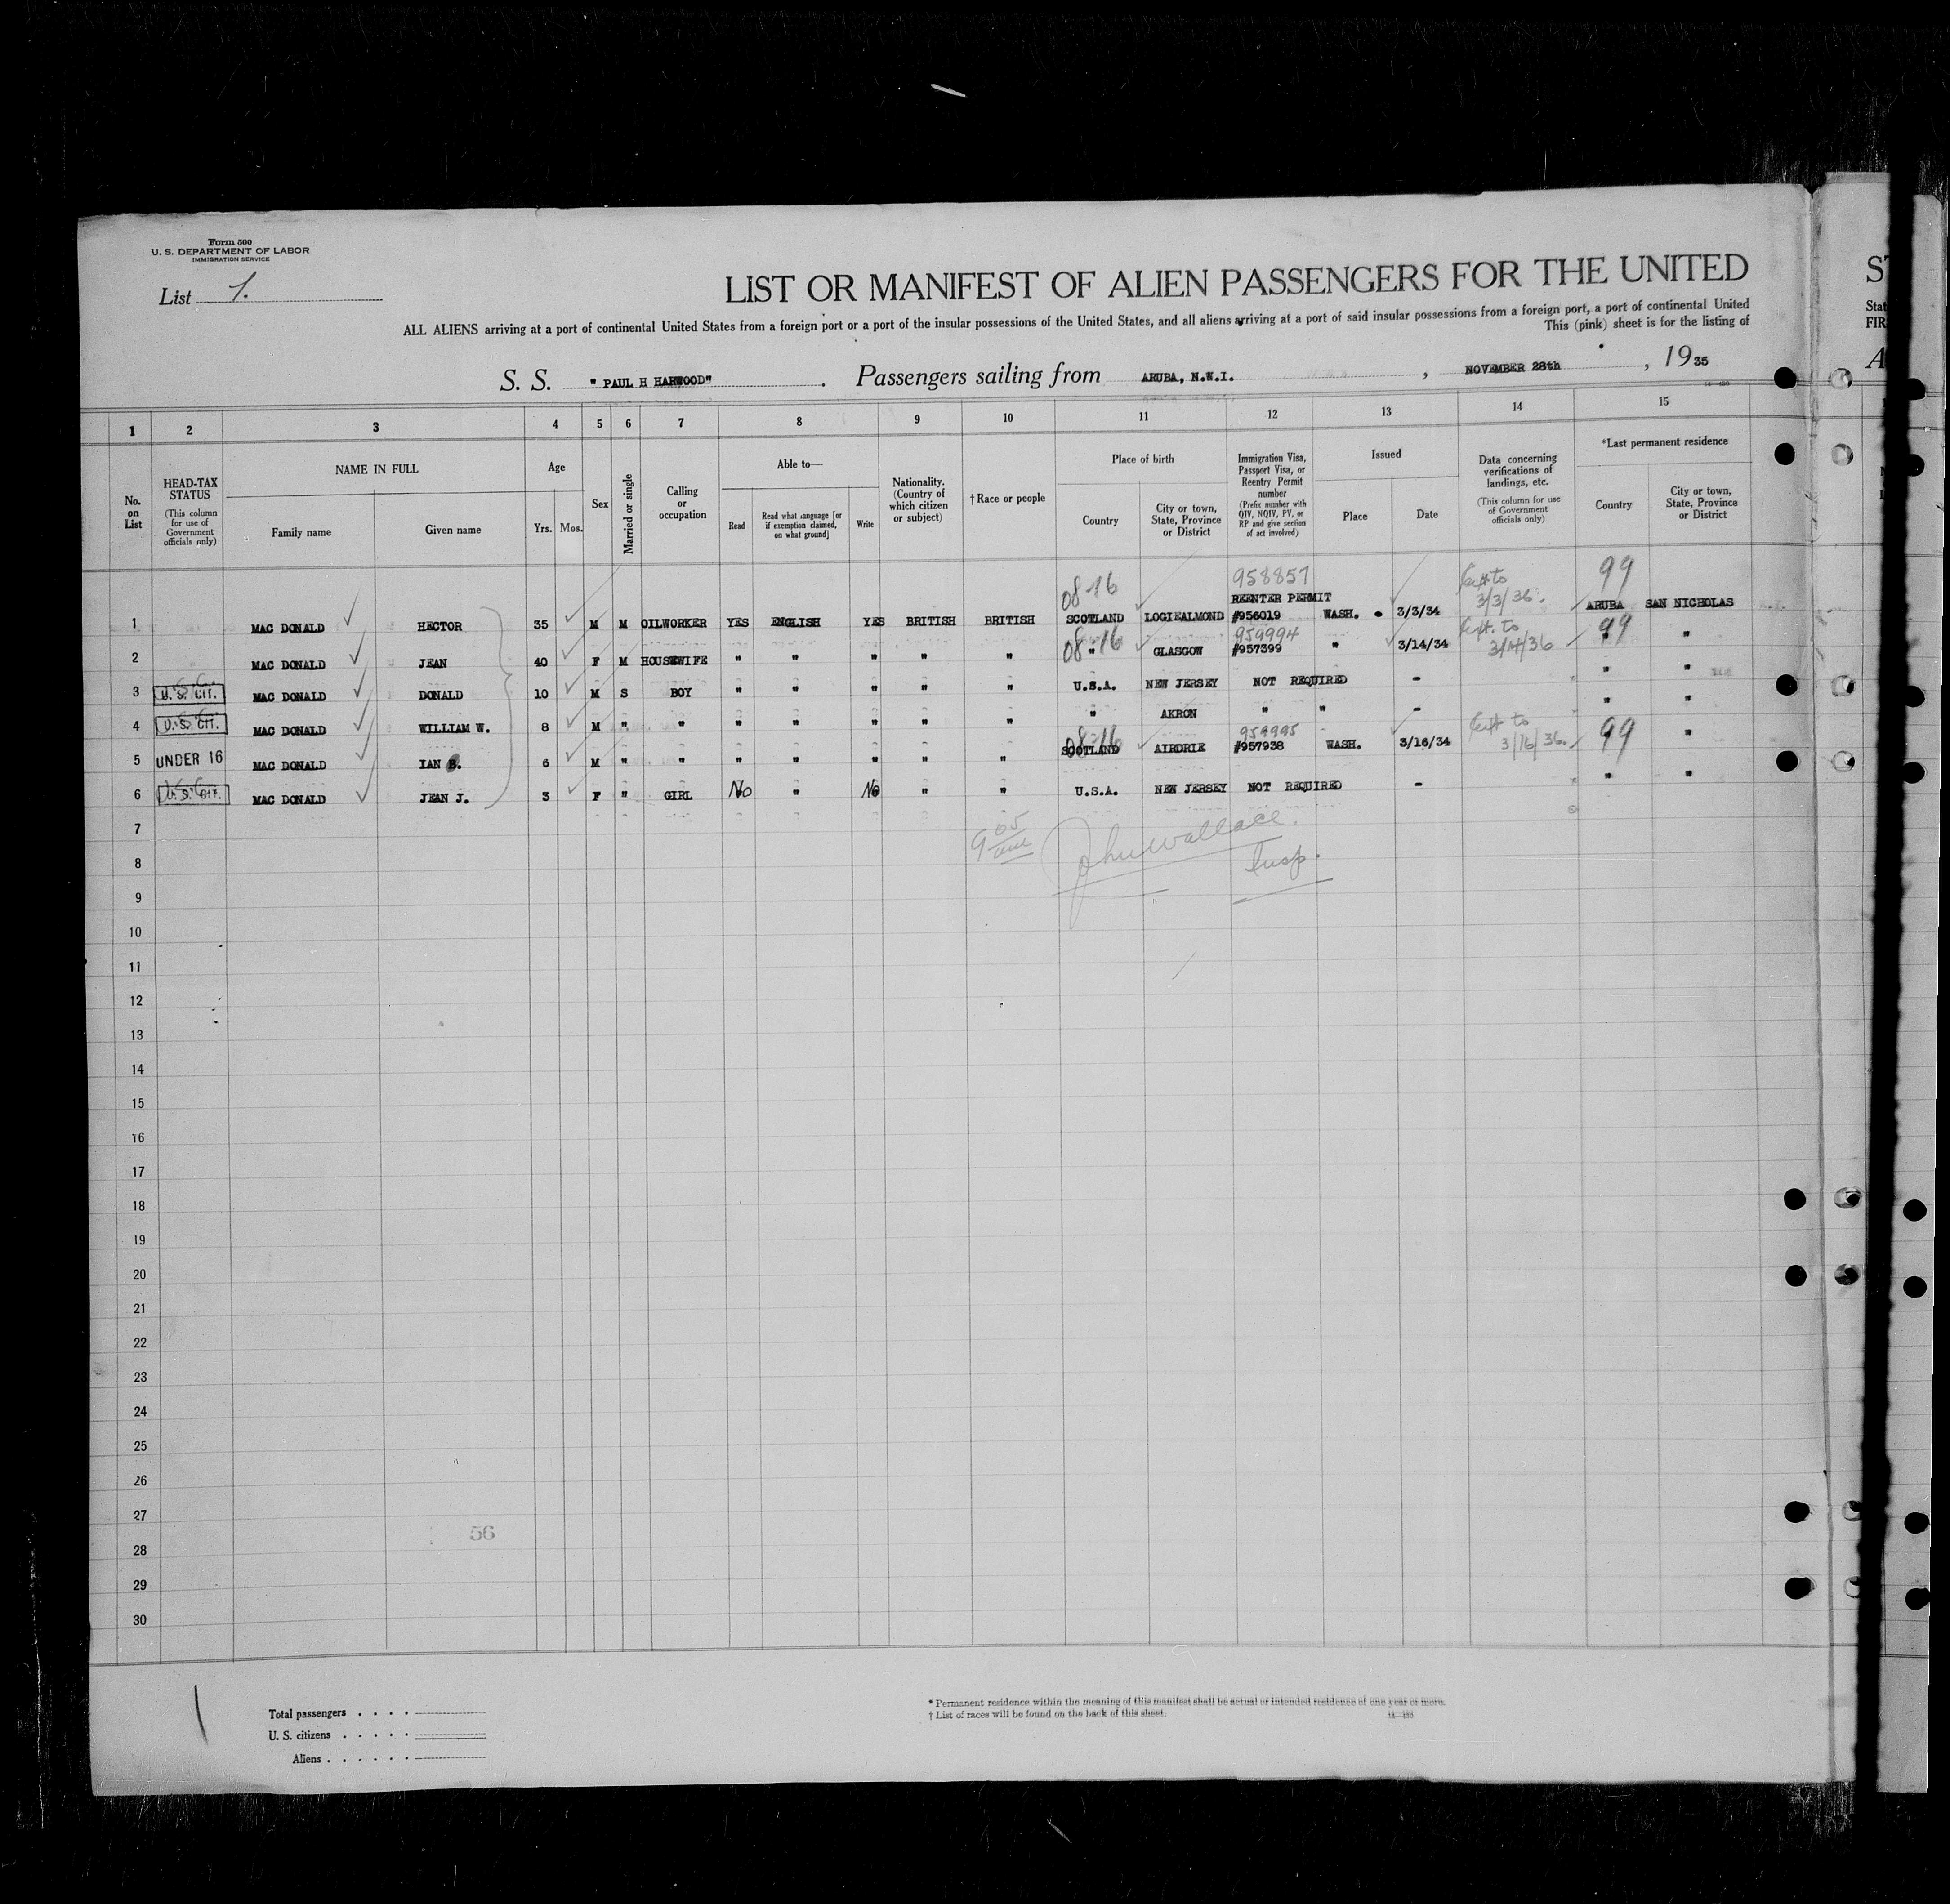 Form 500
U. S. DEPARTMENT OF LABOR
IMMIGRATION SERVICE
List 1.
LIST OR MANIFEST OF ALIEN PASSENGERS FOR THE UNITED
ALL ALIENS arriving at a port of continental United States from a foreign port or a port of the insular possessions of the United States, and all aliens arriving at a port of said insular possessions from a foreign port, a port of continental United
This (pink) sheet is for the listing of
S. S. "PAUL H HARWOOD". Passengers sailing from ARUBA, N.W.I., NOVEMBER 28th, 1935
1 2 3 4 5 6 7 8 9 10 11 12 13 14 15
No. on List
HEAD-TAX STATUS (This column for use of Government officials only)
NAME IN FULL
Family name Given name
Age
Yrs. Mos.
Sex
Married or single
Calling or occupation
Able to—
Read Read what language [or if exemption claimed, on what ground] Write
Nationality. (Country of which citizen or subject)
†Race or people
Place of birth
Country City or town, State, Province or District
Immigration Visa, Passport Visa, or Reentry Permit number (Prefix number with QIV, NQIV, PV, or RP and give section of act involved)
Issued
Place Date
Data concerning verifications of landings, etc. (This column for use of Government officials only)
*Last permanent residence
Country City or town, State, Province or District
08-16 958857 3/3/36 99
REENTER PERMIT
1 MAC DONALD HECTOR 35 M M OILWORKER YES ENGLISH YES BRITISH BRITISH SCOTLAND LOGIEALMOND #956019 WASH. 3/3/34 ARUBA SAN NICHOLAS
08-16 959994 3/14/36 99
2 MAC DONALD JEAN 40 F M HOUSEWIFE " " " " " " GLASGOW #957399 " 3/14/34 " "
3 U.S. CIT. MAC DONALD DONALD 10 M S BOY " " " " " U.S.A. NEW JERSEY NOT REQUIRED - " "
4 U.S. CIT. MAC DONALD WILLIAM W. 8 M " " " " " " " " AKRON " " - " "
08-16 959995 3/16/36. 99
5 UNDER 16 MAC DONALD IAN B. 6 M " " " " " " " SCOTLAND AIRDRIE #957938 WASH. 3/16/34 "
6 U.S. CIT. MAC DONALD JEAN J. 3 F " GIRL No " No " " U.S.A. NEW JERSEY NOT REQUIRED - " "
7
9 05 am John Wallace.
8
Insp.
9
10
11
12
13
14
15
16
17
18
19
20
21
22
23
24
25
26
27
56
28
29
30
Total passengers
U. S. citizens
Aliens
* Permanent residence within the meaning of this manifest shall be actual or intended residence of one year or more.
† List of races will be found on the back of this sheet.